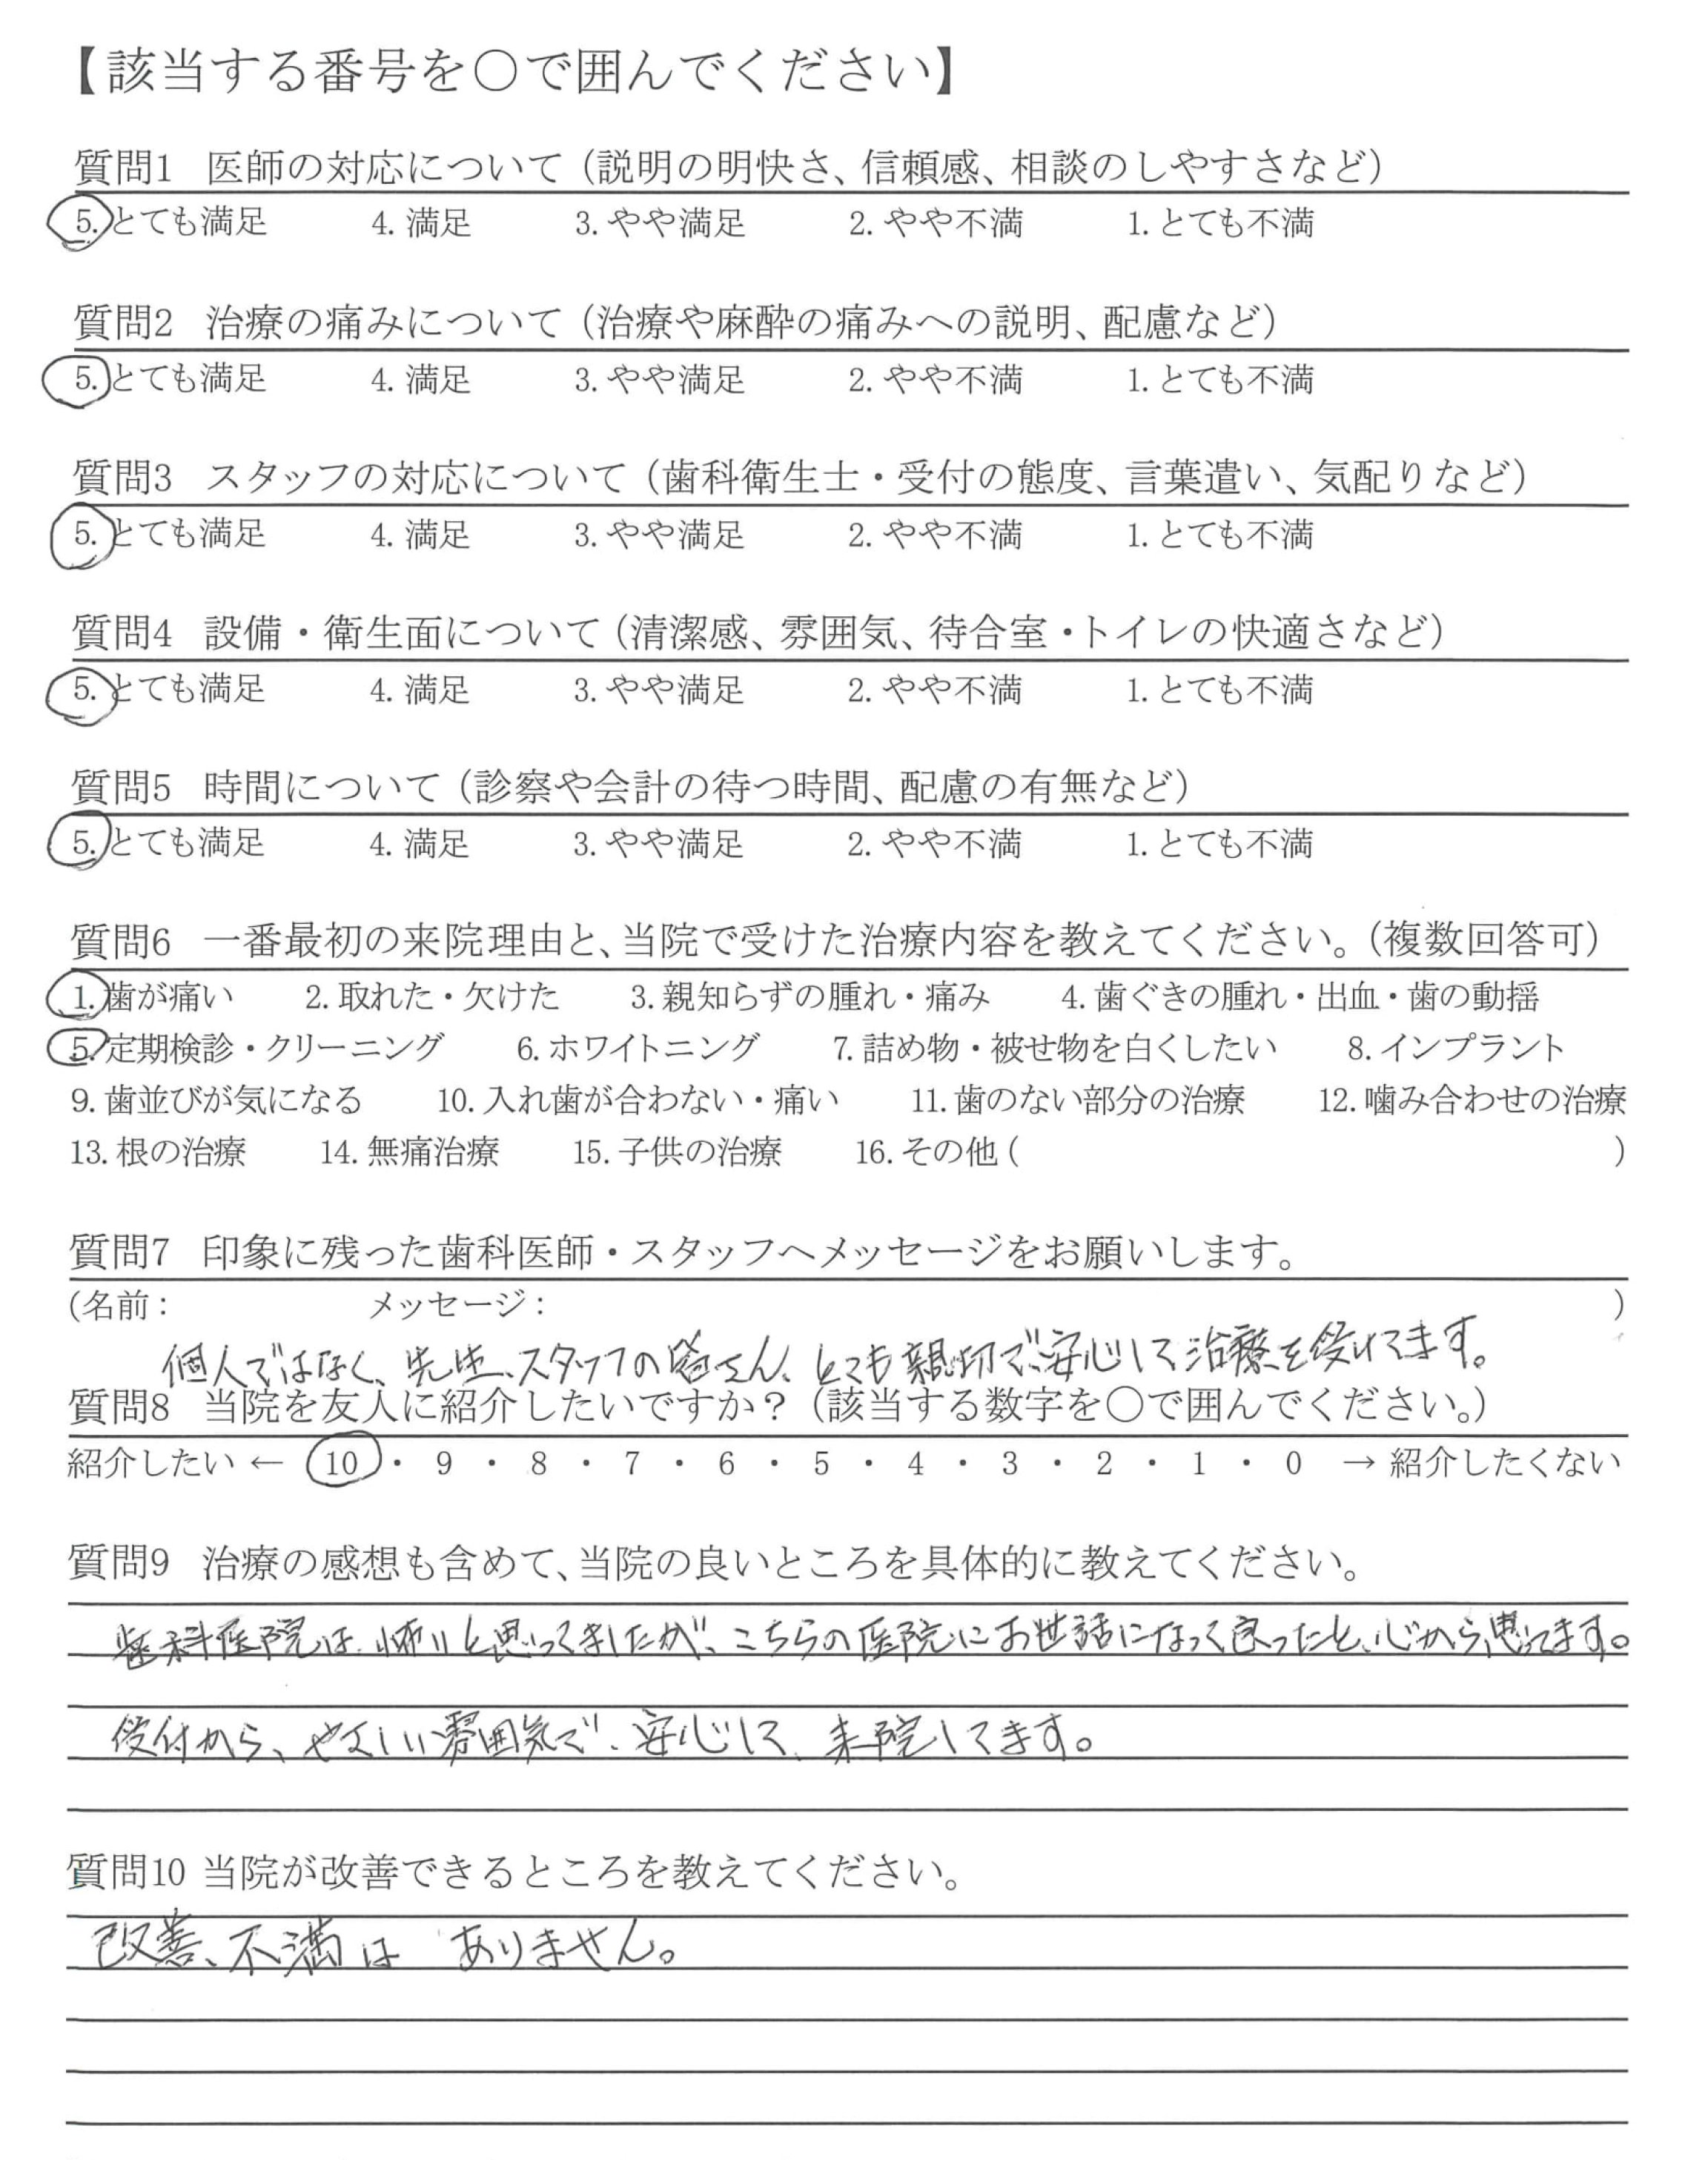 【該当する番号を○で囲んでください】
質問1 医師の対応について（説明の明快さ、信頼感、相談のしやすさなど）
5. とても満足 4. 満足 3. やや満足 2. やや不満 1. とても不満
質問2 治療の痛みについて（治療や麻酔の痛みへの説明、配慮など）
5. とても満足 4. 満足 3. やや満足 2. やや不満 1. とても不満
質問3 スタッフの対応について（歯科衛生士・受付の態度、言葉遣い、気配りなど）
5. とても満足 4. 満足 3. やや満足 2. やや不満 1. とても不満
質問4 設備・衛生面について（清潔感、雰囲気、待合室・トイレの快適さなど）
5. とても満足 4. 満足 3. やや満足 2. やや不満 1. とても不満
質問5 時間について（診察や会計の待つ時間、配慮の有無など）
5. とても満足 4. 満足 3. やや満足 2. やや不満 1. とても不満
質問6 一番最初の来院理由と、当院で受けた治療内容を教えてください。（複数回答可）
1. 歯が痛い 2. 取れた・欠けた 3. 親知らずの腫れ・痛み 4. 歯ぐきの腫れ・出血・歯の動揺
5. 定期検診・クリーニング 6. ホワイトニング 7. 詰め物・被せ物を白くしたい 8. インプラント
9. 歯並びが気になる 10. 入れ歯が合わない・痛い 11. 歯のない部分の治療 12. 噛み合わせの治療
13. 根の治療 14. 無痛治療 15. 子供の治療 16. その他（ ）
質問7 印象に残った歯科医師・スタッフへメッセージをお願いします。
（名前： メッセージ： ）
個人ではなく、先生、スタッフの皆さん、とても親切で、安心して治療を受けてます。
質問8 当院を友人に紹介したいですか？（該当する数字を○で囲んでください。）
紹介したい ← 10 ・ 9 ・ 8 ・ 7 ・ 6 ・ 5 ・ 4 ・ 3 ・ 2 ・ 1 ・ 0 → 紹介したくない
質問9 治療の感想も含めて、当院の良いところを具体的に教えてください。
歯科医院は、怖いと思ってきましたが、こちらの医院にお世話になって良ったと、心から思ってます。
受付から、やさしい雰囲気で、安心して、来院してます。
質問10 当院が改善できるところを教えてください。
改善、不満は ありません。